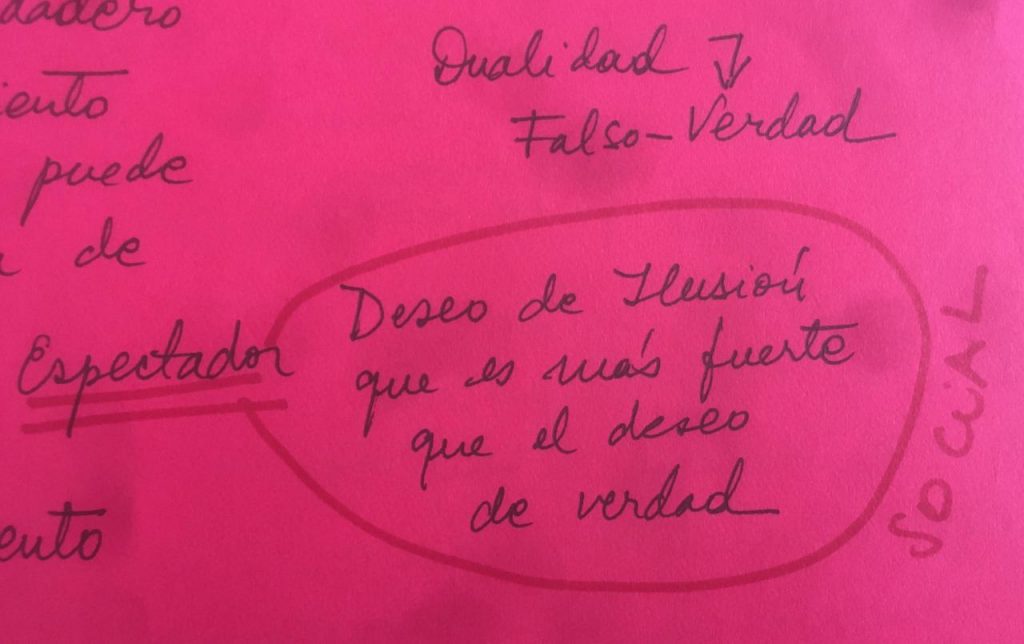 dadero
iento
puede
de
Espectador
ento
Dualidad
Falso-Verdad
Deseo de Ilusión
que es más fuerte
que el deseo
de verdad
SOCIAL